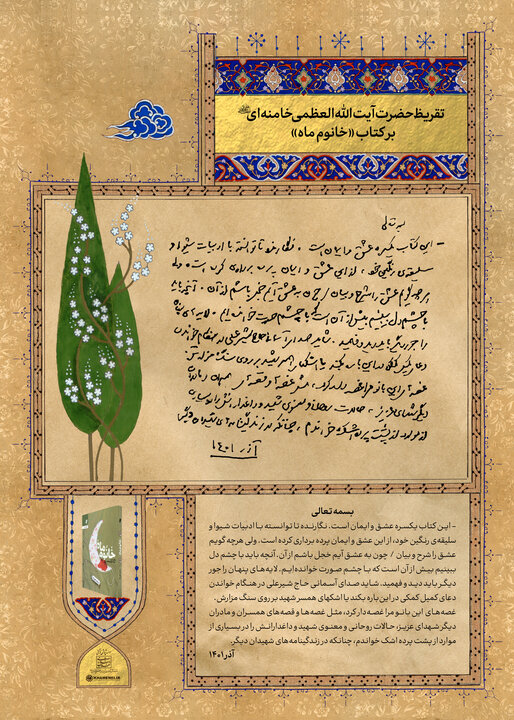 تقریظ حضرت آیت‌الله العظمی خامنه‌ای
بر کتاب «خانوم ماه»
بسه تعالی
- این کتاب یکسره عشق و ایمان است. نگارنده تا توانسته با ادبیات شیوا و
سلیقه‌ی رنگین خود، از این عشق و ایمان پرده برداری کرده است. ولی
هرچه گویم عشق را شرح و بیان / چون به عشق آیم خجل باشم از آن. آنچه باید
با چشم دل ببینیم بیش از آن است که با چشم صورت خوانده‌ایم. لایه‌های پنهان
را جور دیگر باید دید و فهمید. شاید صدای آسمانی حاج شیرعلی در هنگام خواندن
دعای کمیل کمکی در این باره بکند یا اشکهای همسر شهید بر روی سنگ مزارش.
غصه‌های این بانو مرا غصه‌دار کرد، مثل غصه‌ها و قصه‌های همسران و مادران
دیگر شهدای عزیز، حالات روحانی و معنوی شهید و داغدارانش را در بسیاری
از موارد از پشت پرده اشک خواندم، چنانکه در زندگینامه‌های شهیدان دیگر.
آذر ۱۴۰۱
خانوم ماه
بسمه تعالی
- این کتاب یکسره عشق و ایمان است. نگارنده تا توانسته با ادبیات شیوا و
سلیقه‌ی رنگین خود، از این عشق و ایمان پرده برداری کرده است. ولی هرچه گویم
عشق را شرح و بیان / چون به عشق آیم خجل باشم از آن. آنچه باید با چشم دل
ببینیم بیش از آن است که با چشم صورت خوانده‌ایم. لایه‌های پنهان را جور
دیگر باید دید و فهمید. شاید صدای آسمانی حاج شیرعلی در هنگام خواندن
دعای کمیل کمکی در این باره بکند یا اشکهای همسر شهید بر روی سنگ مزارش.
غصه‌های این بانو مرا غصه دار کرد، مثل غصه‌ها و قصه‌های همسران و مادران
دیگر شهدای عزیز، حالات روحانی و معنوی شهید و داغدارانش را در بسیاری از
موارد از پشت پرده اشک خواندم، چنانکه در زندگینامه‌های شهیدان دیگر.
آذر ۱۴۰۱
KHAMENEI.IR